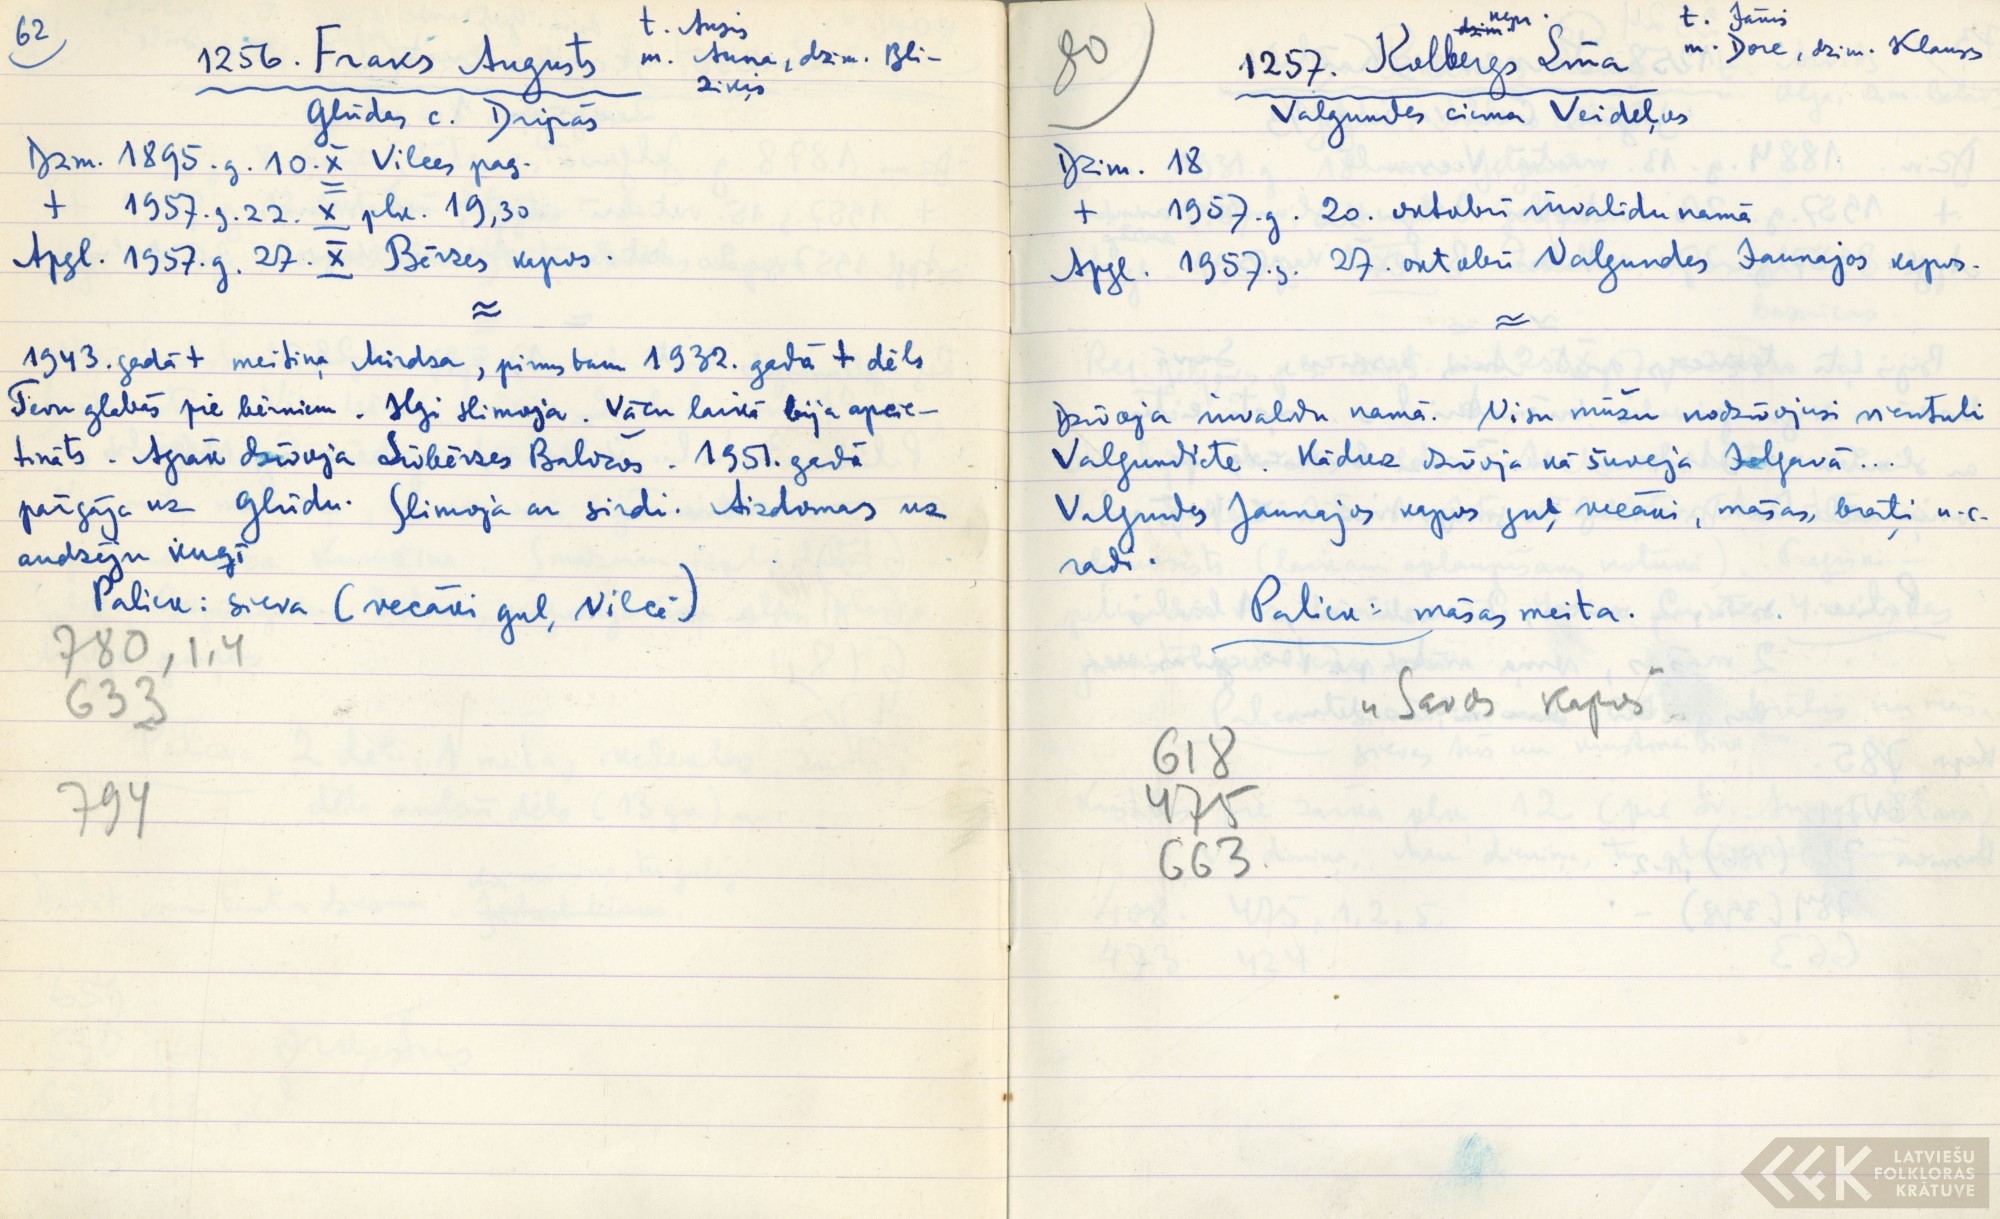 62
1256. Fraks Augusts
t. Ansis
m. Anna, dzim. Bli-
zikis
Glūdas c. Dripās
Dzim. 1895.g. 10.X Vilces pag.
+ 1957.g. 22. X plx. 19,30
Apgl. 1957.g. 27. X Bērzes kapos.
≈
1943. gadā + meitiņa Mirdza, pirms tam 1932. gadā + dēls
Tēvu glabās pie bērniem. Ilgi slimoja. Vācu laikā bija apcie-
tināts. Agrāk dzīvoja Līvbērzes Baložos. 1951. gadā
pārgāja uz Glūdu. Slimoja ar sirdi. Aizdomas uz
audzēju kuņģī
Paliek: sieva (vecāki guļ Vilcē)
780, 1,4
633
794
80
1257. Kolbergs Līna
dzim. nepr.
t. Jānis
m. Dore, dzim. Klauss
Valgundes ciema Veideļos
Dzim. 18
+ 1957.g. 20. oktobrī invalidu namā
Apgl. 1957.g. 27. oktobrī Valgundes Jaunajos kapos.
≈
Dzīvoja invalīdu namā. Visu mūžu nodzīvojusi vientuli
Valgundiete. Kādus dzīvoja kā šuvēja Jelgavā...
Valgundes Jaunajos kapos guļ vecāki, māsas, brāļi u.c.
radi.
Paliek: māsas meita.
"Savos kapos"
618
475
663.
LATVIEŠU
FOLKLORAS
KRĀTUVE